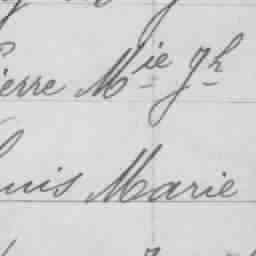 ierre Mie Jh
uis Marie